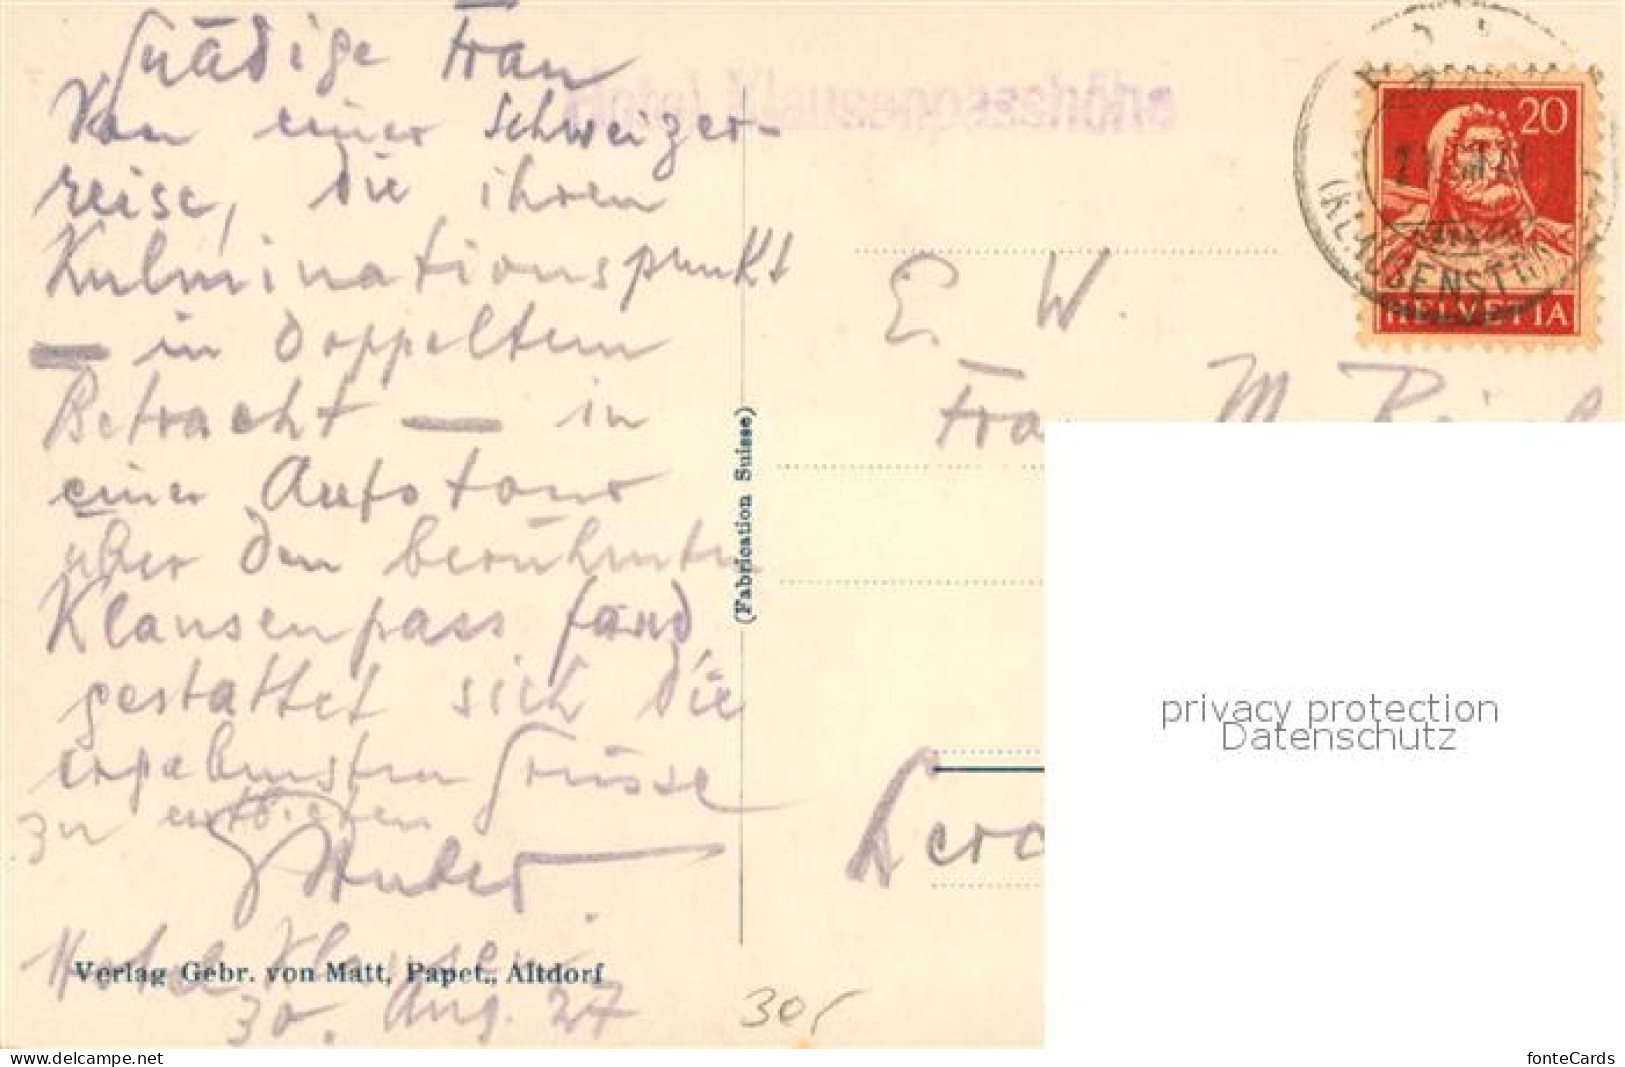 Gnädige Frau
Von einer Schweizer-
reise, die ihren
Kulminationspunkt
— in doppeltem
Betracht — in
einer Autotour
über den berühmten
Klausenpass fand,
gestattet sich die
ergebensten Grüsse
zu entbieten
Huber
Hotel Klausen
30. Aug. 27
Verlag Gebr. von Matt, Papet., Altdorf
(Fabrication Suisse)
Hotel Klausenpasshöhe
20
(KLAUSENSTR
HELVETIA
E. W.
Frau M.
305
privacy protection
Datenschutz
www.delcampe.net
fonteCards